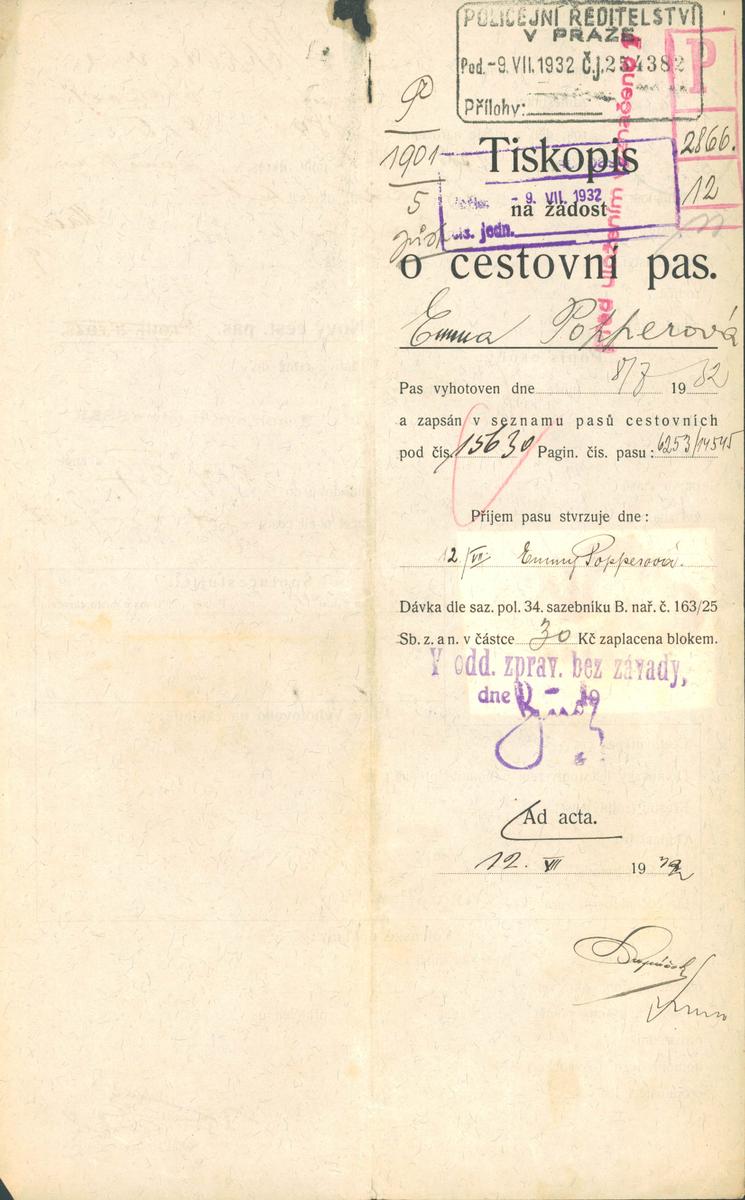 POLICEJNÍ ŘEDITELSTVÍ
V PRAZE
Pod. -9. VII. 1932 č.j. 254382
Přílohy:
P
1901
5
P
2866.
12
před uložením vyznačeno
Tiskopis
- 9. VII. 1932
na žádost
čís. jedn.
o cestovní pas.
Emma Popperová
Pas vyhotoven dne 8/7 1932
a zapsán v seznamu pasů cestovních
pod čís. 15630 Pagin. čís. pasu: 6253/14545
Příjem pasu stvrzuje dne:
12/VII. Emmy Popperová.
Dávka dle saz. pol. 34. sazebníku B. nař. č. 163/25
Sb. z. a n. v částce 30 Kč zaplacena blokem.
V odd. zprav. bez závady,
dne 19
Ad acta.
12. VII 1932